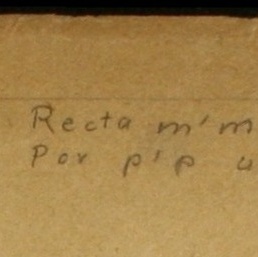 Recta m'm
Por p'p u